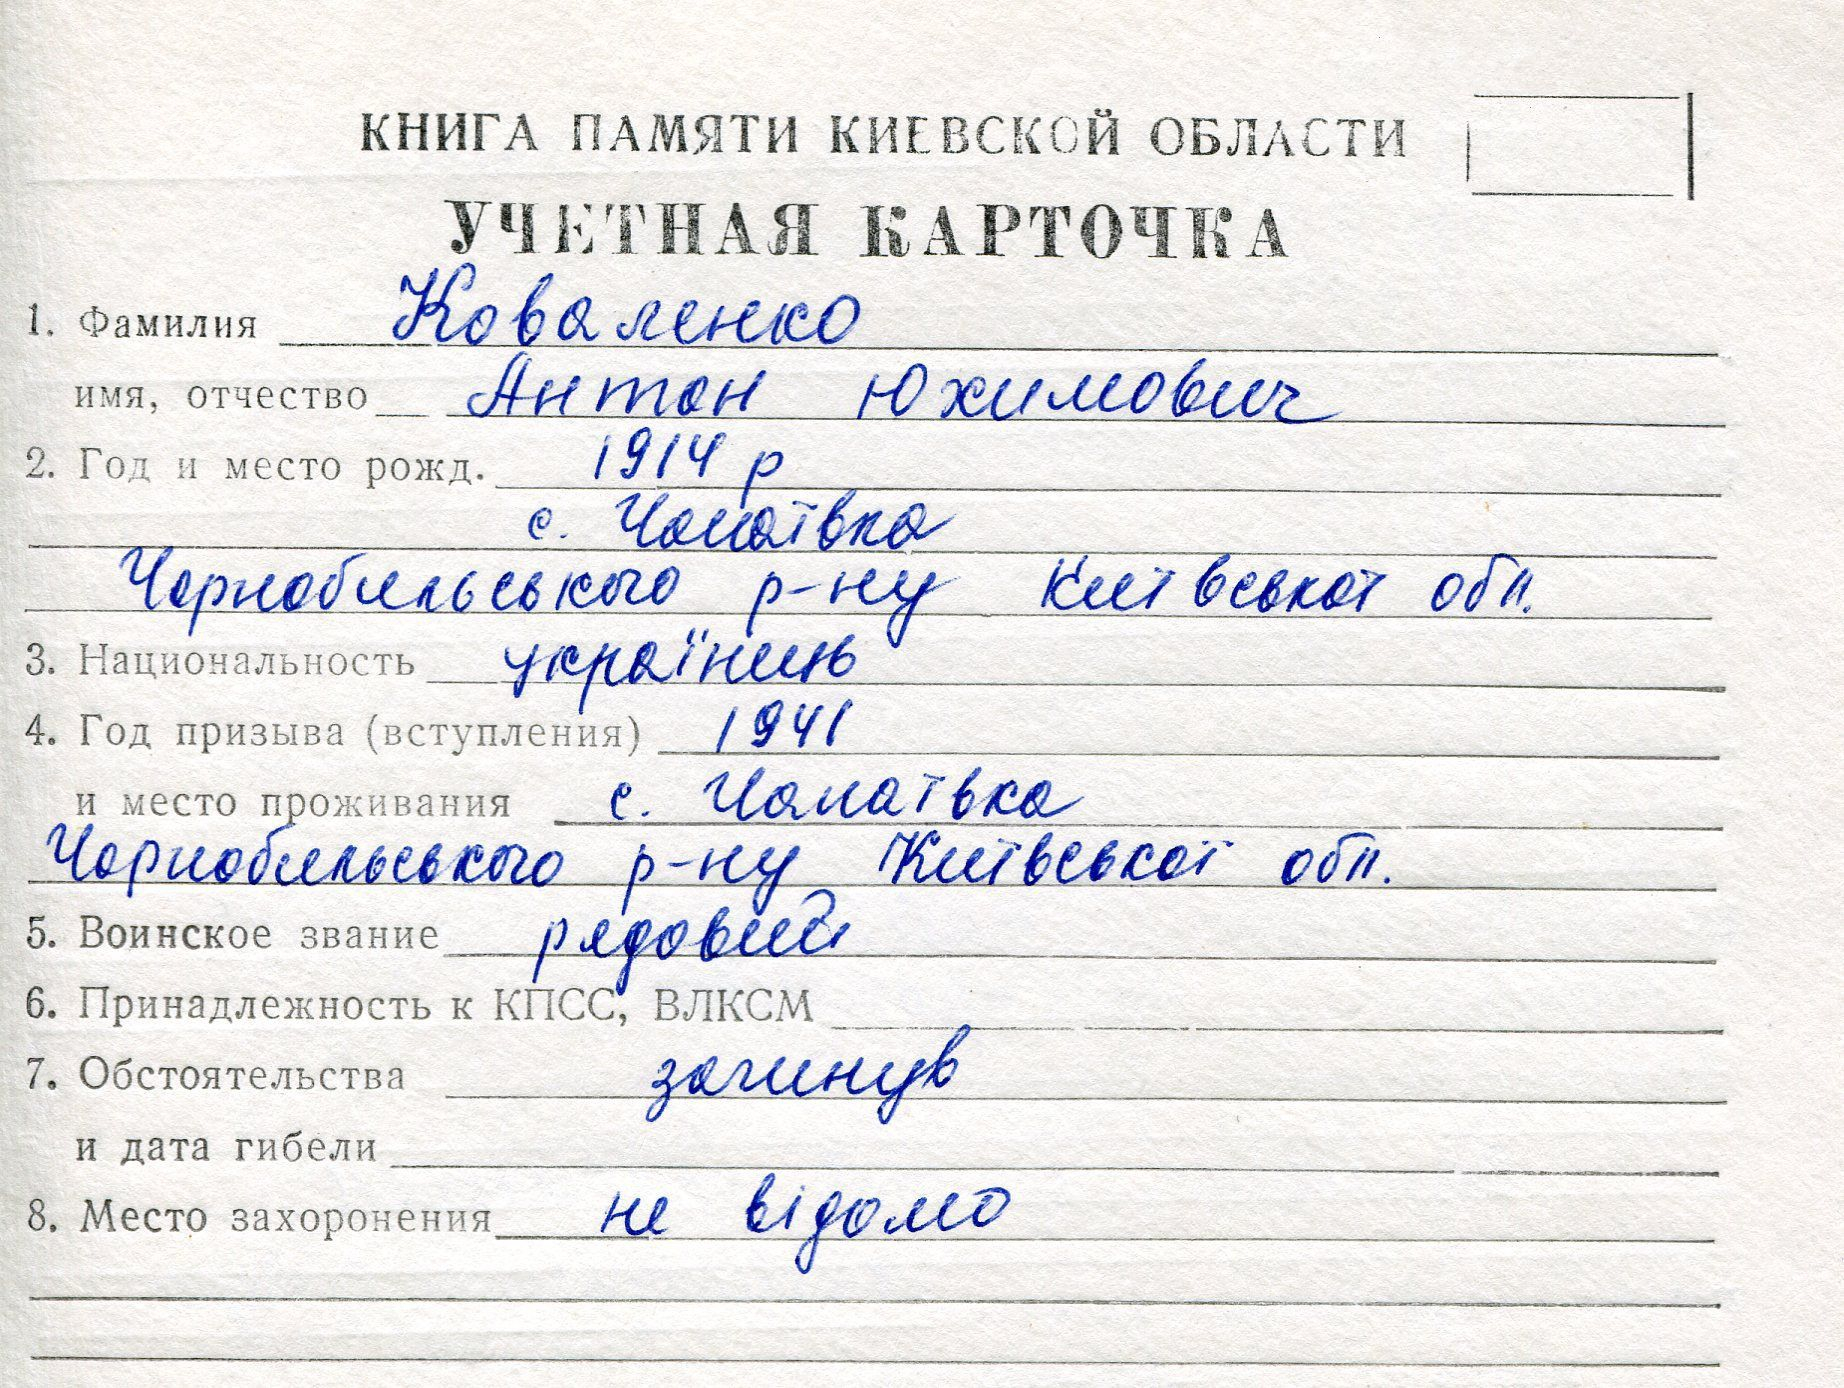 КНИГА ПАМЯТИ КИЕВСКОЙ ОБЛАСТИ
УЧЕТНАЯ КАРТОЧКА
1. Фамилия Коваленко
имя, отчество Антон Юхимович
2. Год и место рожд. 1914 р
с. Чапаївка
Чорнобильського р-ну Київської обл.
3. Национальность українць
4. Год призыва (вступления) 1941
и место проживания с. Чапаївка
Чорнобильського р-ну Київської обл.
5. Воинское звание рядовий
6. Принадлежность к КПСС, ВЛКСМ
7. Обстоятельства загинув
и дата гибели
8. Место захоронения не відомо